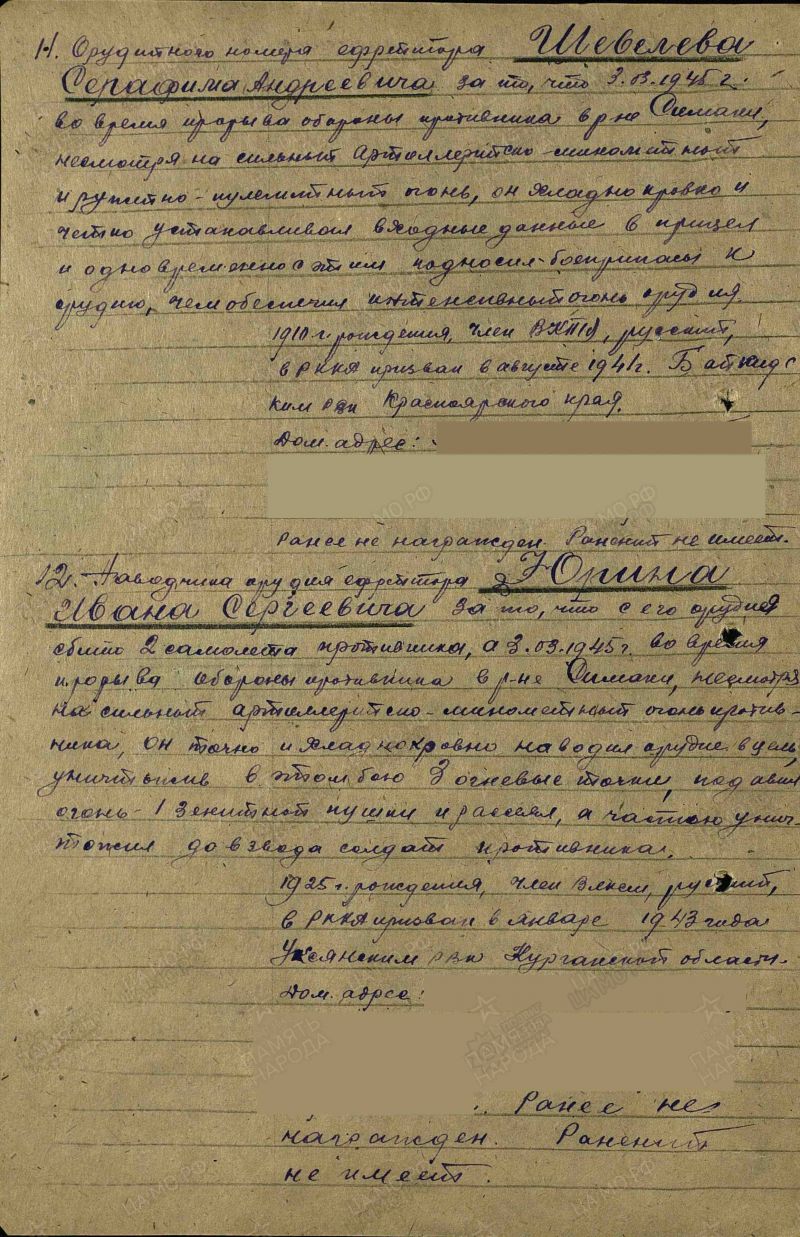 11. Орудийного номера ефрейтора Шевелева
Серафима Андреевича за то, что 3.03.1945 г.
во время прорыва обороны противника в р-не Симаки,
несмотря на сильный артиллерийско-минометный
и ружейно-пулеметный огонь, он хладнокровно и
четко устанавливал входные данные в прицел
и одновременно с этим подносил боеприпасы к
орудию, чем обеспечил интенсивный огонь орудия.
1910 г. рождения, член ВКП(б), русский,
в РККА призван в августе 1941 г.
ким рвк Красноярского края.
Дом. адрес:
Ранее не награжден. Ранений не имеет.
12. Наводчика орудия ефрейтора Юрина
Ивана Сергеевича за то, что с его орудия
сбито 2 самолета противника, а 3.03.1945 г. во время
прорыва обороны противника в р-не Симаки, несмотря
на сильный артиллерийско-минометный огонь против-
ника, он точно и хладнокровно наводил орудие в цель,
уничтожив в этом бою 3 огневые точки, подавил
огонь 1 зенитной пушки и рассеял, а частью унич-
тожил до взвода солдат противника.
1925 г. рождения, член ВЛКСМ, русский,
в РККА призван в январе 1943 года
Уксянским рвк Курганской области.
Дом. адрес:
Ранее не
награжден. Ранений
не имеет.